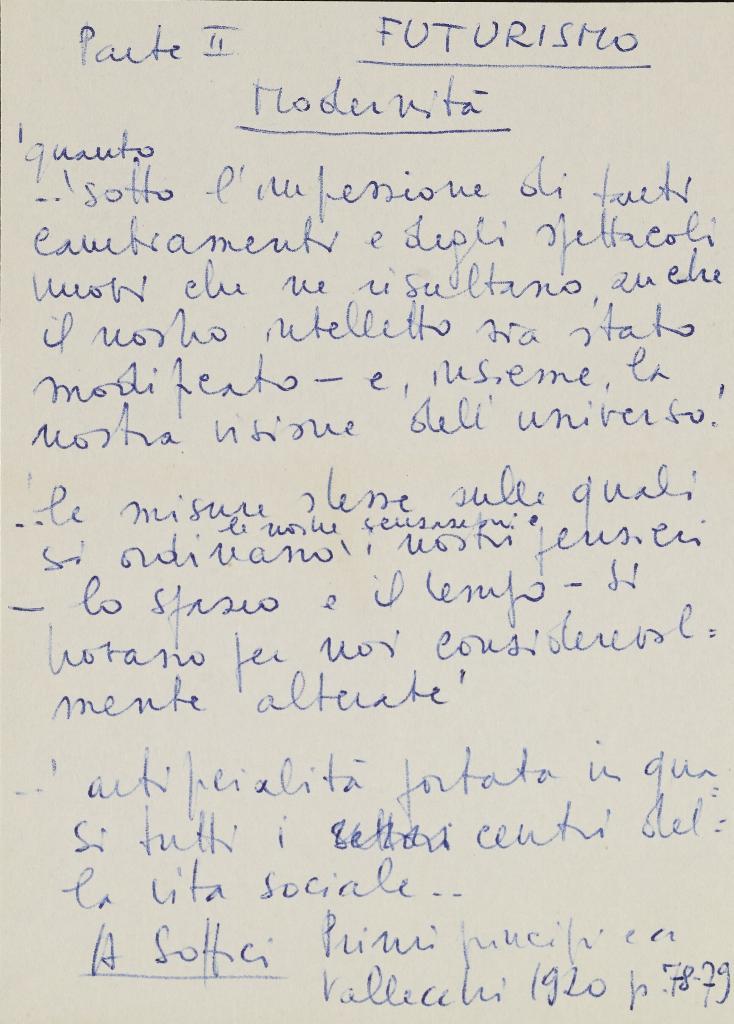 Parte II FUTURISMO
Modernità
'quanto
..'sotto l'impressione di tanti
cambiamenti e degli spettacoli
nuovi che ne risultano, anche
il nostro intelletto sia stato
modificato — e, insieme, la
nostra visione dell'universo.'
..'le misure stesse sulle quali
le nostre sensazioni e
si ordinano i nostri pensieri
— lo spazio e il tempo — si
trovano per noi considerevol=
mente alterate'
..' artificialità portata in qua=
si tutti i centri del=
la vita sociale..
A Soffici Primi principi
Vallecchi 1920 p. 78-79